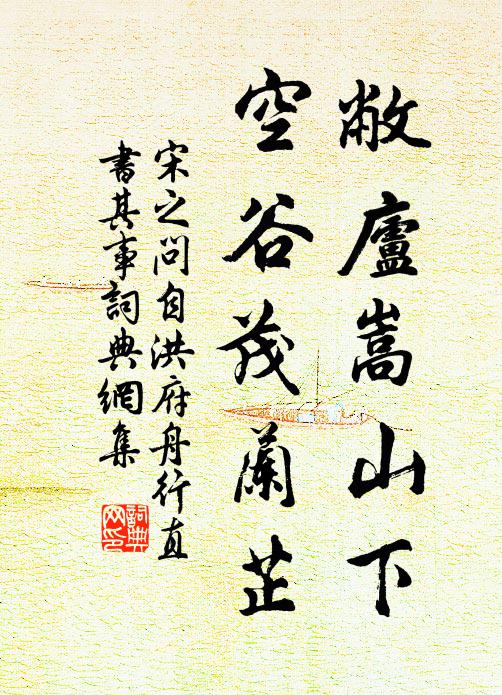 敝廬嵩山下
空谷茂蘭芷
宋之問自洪府舟行直
書其事詞典網集
詞典
网印